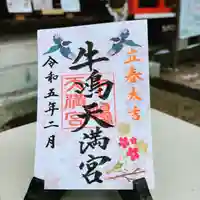 立春大吉
牛島天満宮
天満宮
令和五年二月